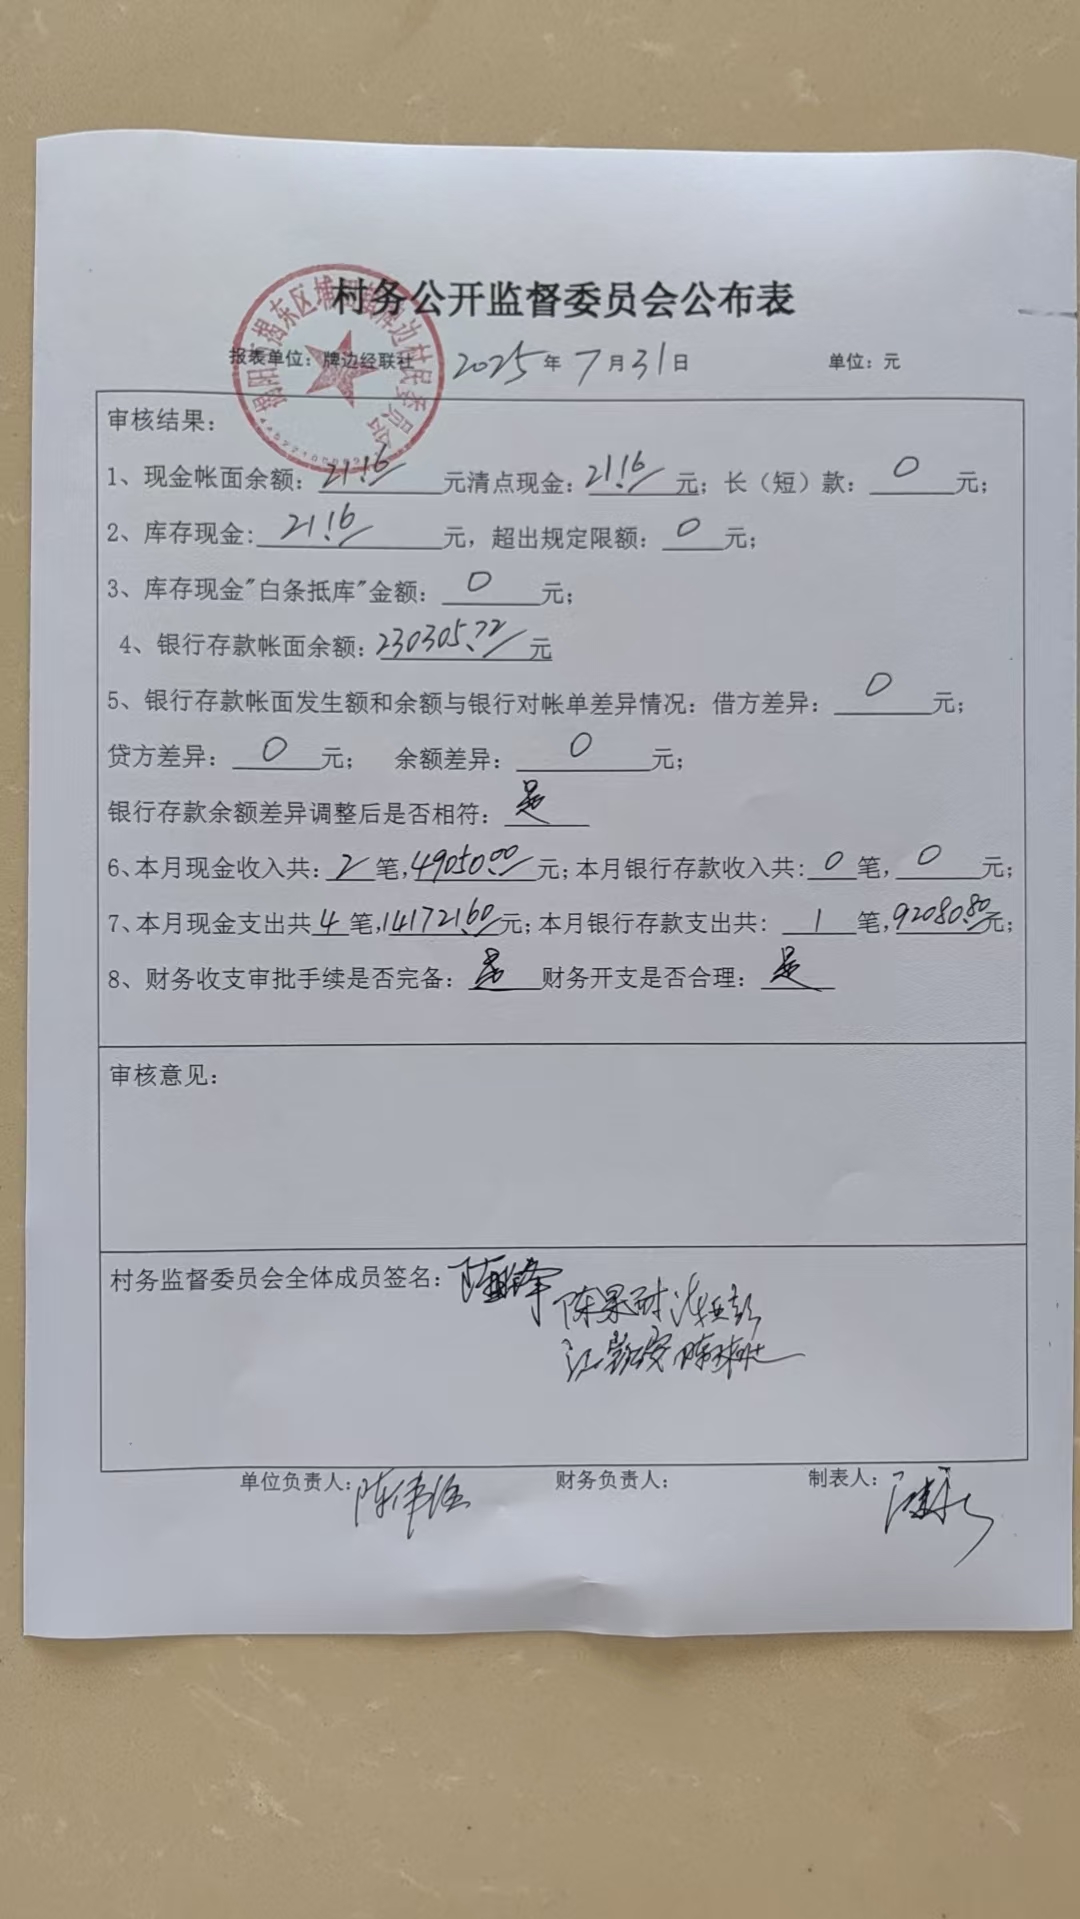 村务公开监督委员会公布表
报表单位：牌边经联社 2025年7月31日 单位：元
审核结果：
1、现金帐面余额：21.16元清点现金：21.16元；长（短）款：0元；
2、库存现金：21.16元，超出规定限额：0元；
3、库存现金"白条抵库"金额：0元；
4、银行存款帐面余额：230305.72元
5、银行存款帐面发生额和余额与银行对帐单差异情况：借方差异：0元；
贷方差异：0元； 余额差异：0元；
银行存款余额差异调整后是否相符：是
6、本月现金收入共：2笔，49050.00元；本月银行存款收入共：0笔，0元；
7、本月现金支出共4笔，141721.60元；本月银行存款支出共：1笔，92080.80元；
8、财务收支审批手续是否完备：是 财务开支是否合理：是
审核意见：
村务监督委员会全体成员签名：
单位负责人： 财务负责人： 制表人：